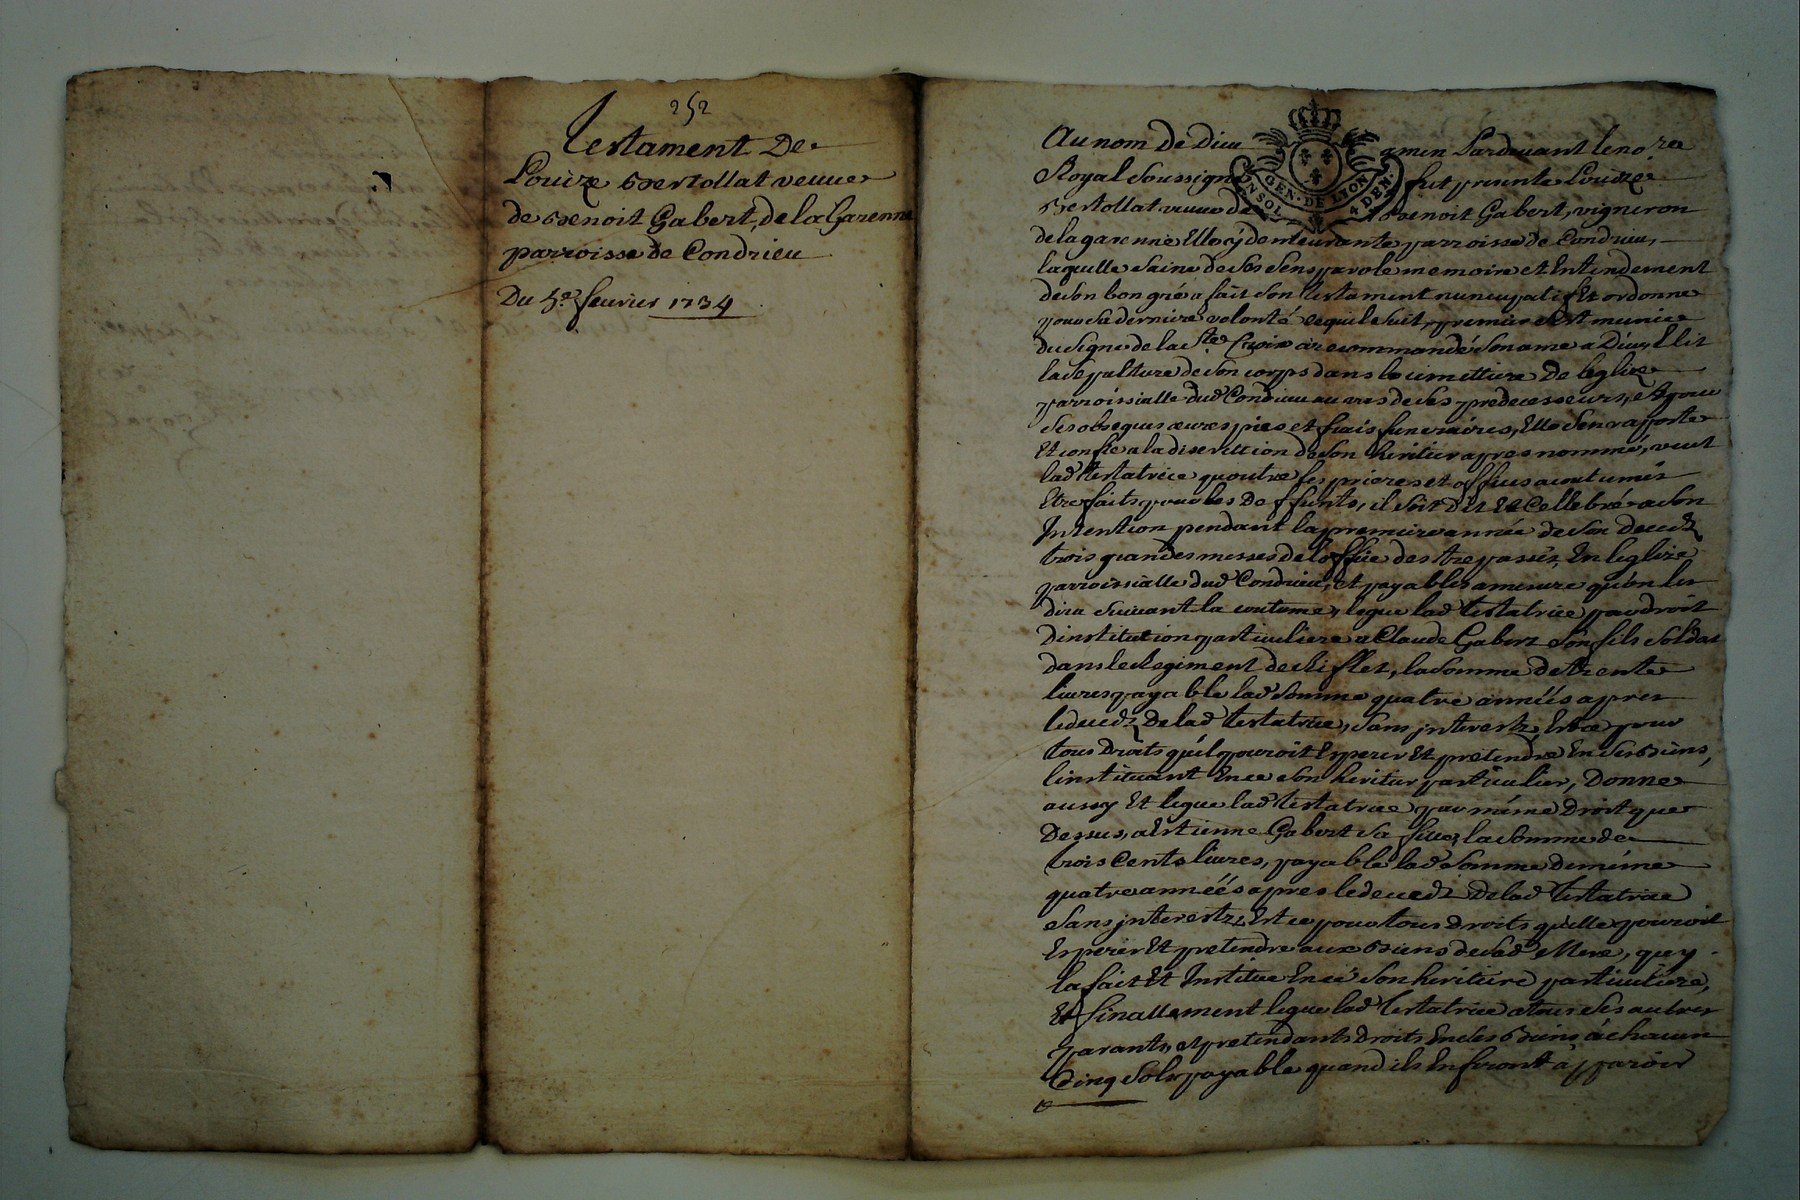 252
Testament De
Louize Bertollat veuue
de Benoit Gabert, de la Garenne
parroisse de Condrieu
Du 5e. feurier 1734
GEN. DE LYON
UN SOL 4 DEN.
Au nom De Dieu amen Pardeuant le no.re
Royal Soussigné fut presente Louize
Bertollat veuue de Benoit Gabert, vigneron
de la garenne Elle cy demeurante parroisse de Condrieu,
laquelle saine de ses sens parole memoire et Entendement
de son bon gré a fait son testament nuncupatif Et ordonne
pour sa derniere volonté ce qui le suit, premier s'est munie
du signe de la Ste. Croix a recommandé son ame a Dieu, Elit
la sepulture de son corps dans le cimettiere De leglize
parroissialle dud Condrieu au vas de ses predecesseurs, et pour
ses obseques œuures pies et frais funeraires, Elle s'en rapporte
Et confie a la discrettion de son heritier apres nommé, veut
lad testatrice qu'outre les prieres et offices acoutumés
Etre faits pour les Deffunts, il soit Dit Et Cellebré a son
Intention pendant la premiere année de son decedz
trois grandes messes de loffice des trepassés, En leglize
parroissialle dud Condrieu, et payables a mesure qu'on les
dira suiuant la coutume, legue lad testatrice par droit
Dinstitution particuliere a Claude Gabert son fils soldat
dans le Regiment de , la somme de trente
liures payable lad somme quatre années apres
le decedz De lad testatrice, sans jnterestz, Et ce pour
tous Droits qu'il pouroit Esperer Et pretendre En ses Biens,
linstituant En ce son heritier particulier, Donne
aussy Et legue lad testatrice par même Droit que
Dessus, a Estienne Gabert sa fille, la somme de
trois Cents liures, payable lad somme De même
quatre années apres le decedz De lad testatrice
sans jnterestz, Et ce pour tous Droits qu'elle pouroit
Esperer Et pretendre aux Biens de sad Mere, qu'y
la fait Et Institue En ce son heritiere particuliere,
Et finallement legue lad testatrice a tous ses autres
parants, et pretendants Droits En ses Biens, a chacun
Cinq sols payable quand ils En feront apparoir